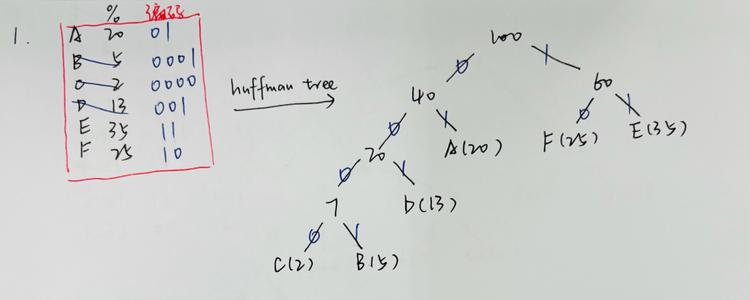 1.
% 编码
A 20 01
B 5 0001
C 2 0000
D 13 001
E 35 11
F 25 10
huffman tree
100
0 1
40 60
0 1 0 1
20 A(20) F(25) E(35)
0 1
7 D(13)
0 1
C(2) B(5)